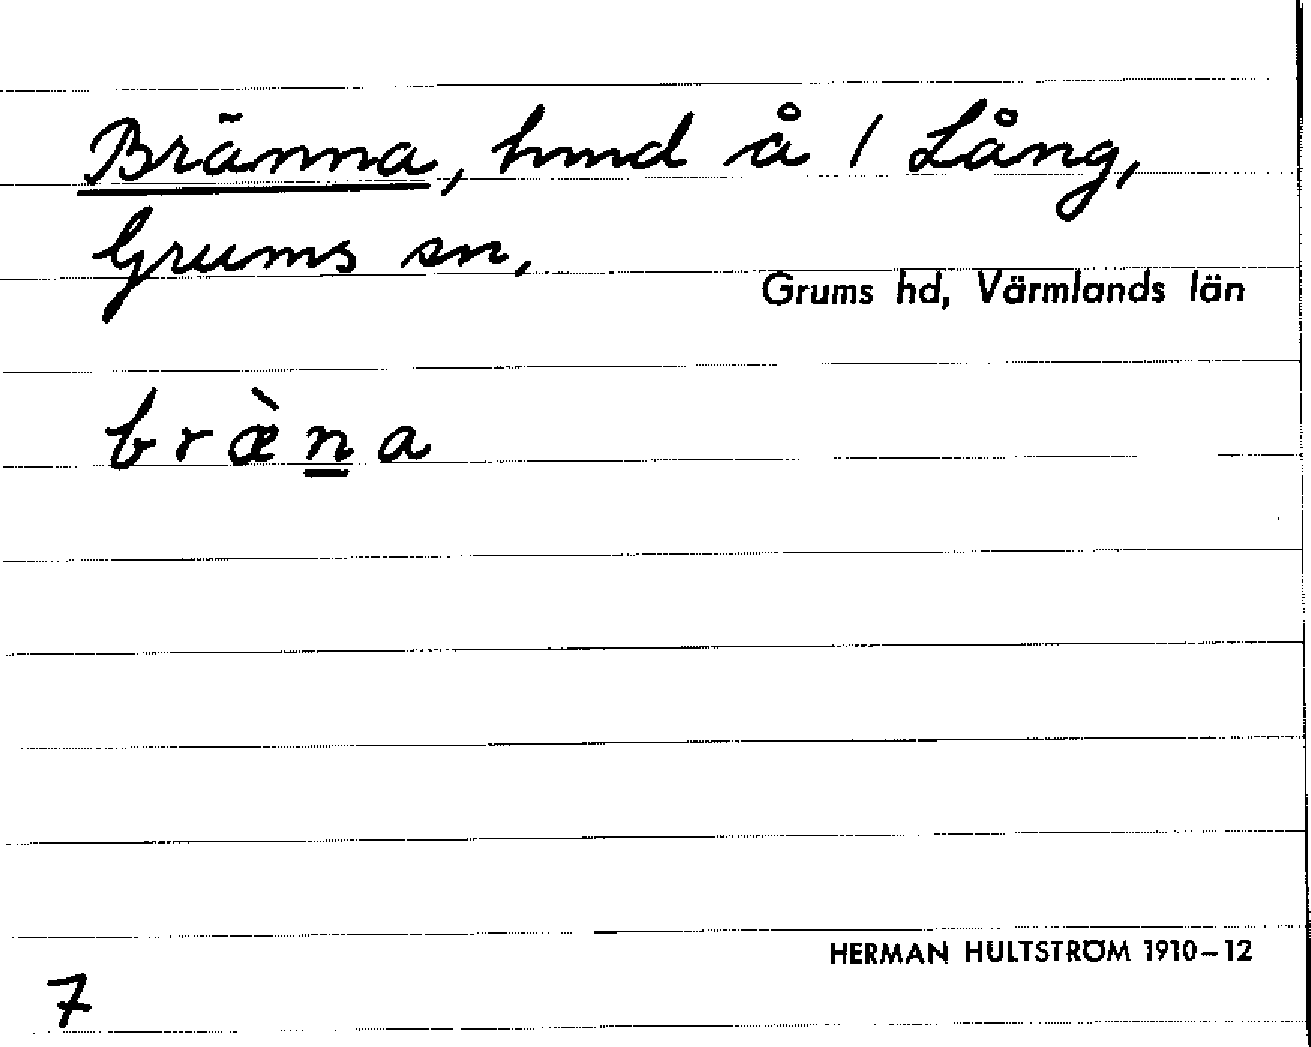 Bränna, hmd å 1 Lång,
Grums sn,
Grums hd, Värmlands län
bræ̀n̲a
HERMAN HULTSTRÖM 1910–12
7